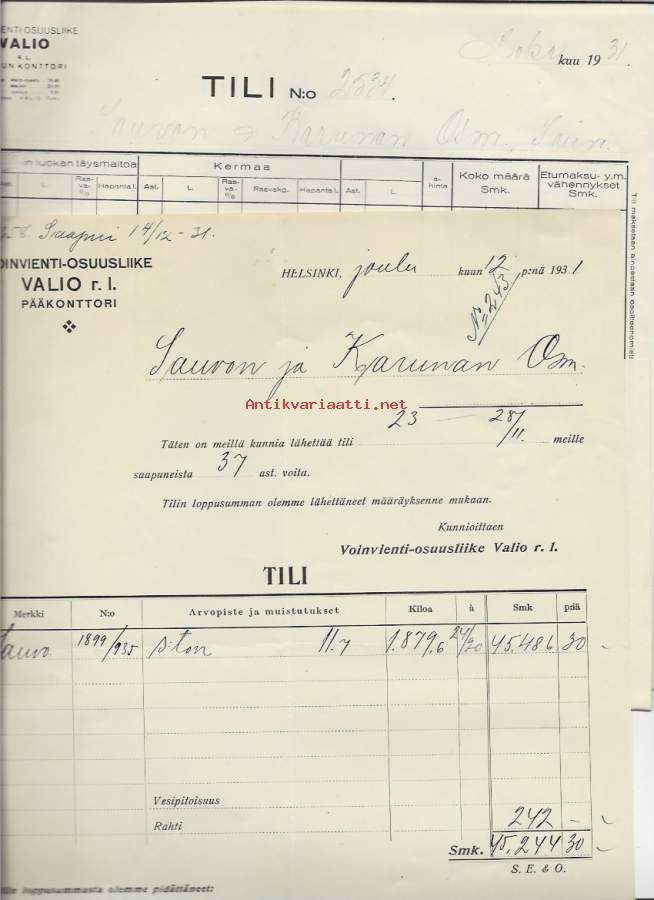 ENTI-OSUUSLIIKE
VALIO
R. L.
UN KONTTORI
kuu 1931.
TILI N:o 2534.
Sauvon & Karunan Osm.,
n luokan täysmaitoa
Kermaa
Ast. L. Ras-va-% Hapanta l. Ast. L. Ras-va-% Rasvakg. Hapanta l. Ast. L. à-hinta
Koko määrä Smk.
Etumaksu- y.m. vähennykset Smk.
Tili maksetaan ainoastaan osoitteenomista
Saapui 14/12-31.
OINVIENTI-OSUUSLIIKE
VALIO r. l.
PÄÄKONTTORI
HELSINKI, joulu kuun 12 p:nä 1931
No=243.
Sauvon ja Karunan Osm.
Antikvariaatti.net
Täten on meillä kunnia lähettää tili 23 — 28/11. meille
saapuneista 37 ast. voita.
Tilin loppusumman olemme lähettäneet määräyksenne mukaan.
Kunnioittaen
Voinvienti-osuusliike Valio r. l.
TILI
Merkki N:o Arvopiste ja muistutukset Kiloa à Smk p:iä
Sauvo. 1899/935 s:ton 11.7 1.879,6 24/20 45.486 30
Vesipitoisuus
Rahti 242 -
Smk. 45,244 30
S. E. & O.
ilin loppusummasta olemme pidättäneet: